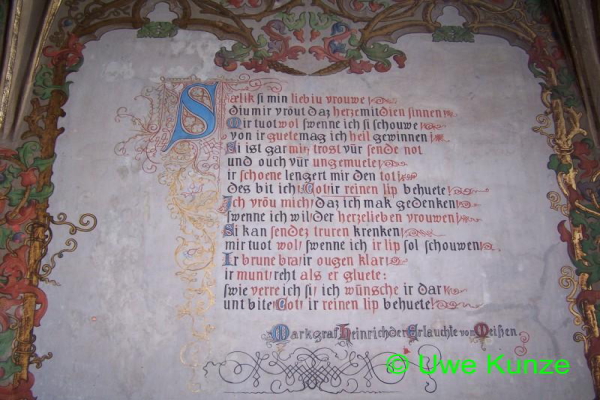 Sælik si min liebiu vrouwe!
diu mir vröut daz herze mit dien sinnen!
Mir tuot wol swenne ich si schouwe!
von ir guete mag ich heil gewinnen!
Si ist gar min trost vür sende not
und ouch vür ungemuete!
ir schoene lengert mir den tot!
des bit ich! Got ir reinen lip behuete!
Ich vröu mich! daz ich mak gedenken!
swenne ich wil! der herzelieben vrouwen!
Si kan sendez truren krenken!
mir tuot wol! swenne ich ir lip sol schouwen!
Ir brune bra! ir ougen klar!
ir munt! reht als er gluete!
swie verre ich si! ich wünsche ir dar!
unt bite! Got! ir reinen lip behuete!
Markgraf Heinrich der Erlauchte von Meißen
© Uwe Kunze